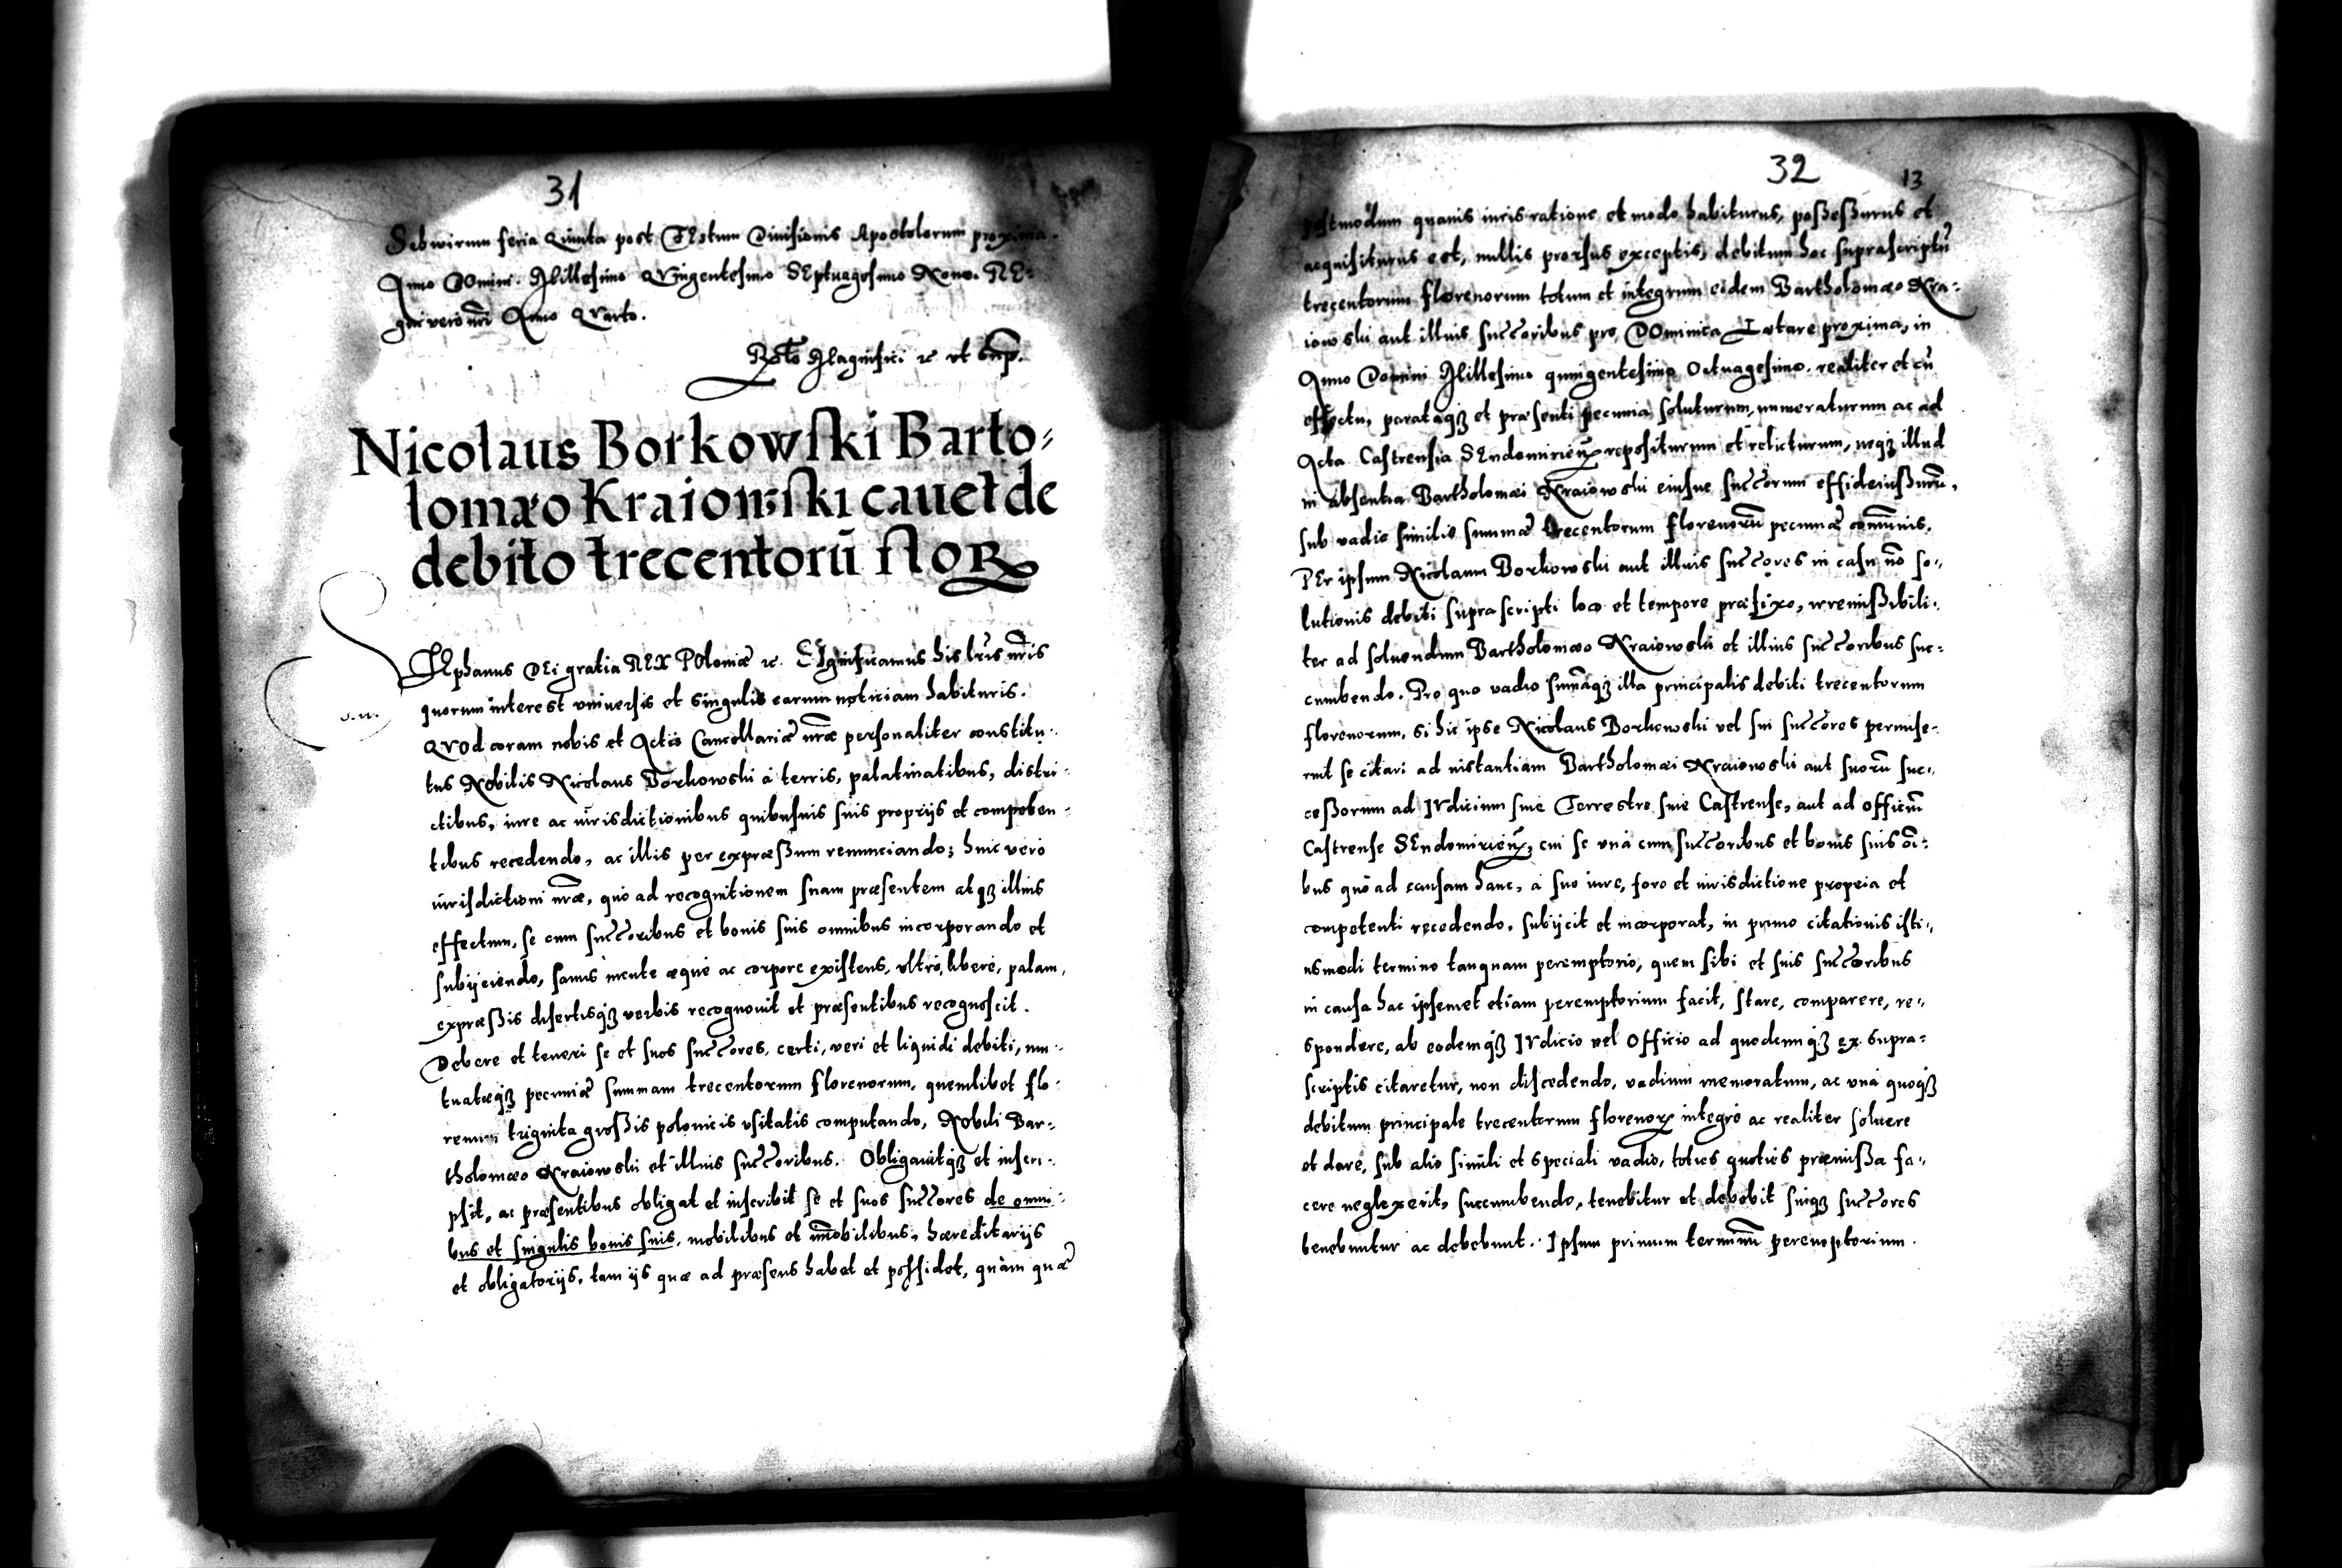 31
Sebwirum feria Quinta post FEstum Diuisionis Apostolorum proxima.
Anno DOmini. Millesimo QVingentesimo SEptuagesimo Nono. RE-
gni vero nri Anno QVarto.
Rtō Magnifici ꝛc vt sup.
Nicolaus Borkowſki Barto⸗
lomæo Kraiowſki cauet de
debito trecentorū floꝝ
STephanus DEi gratia REX POloniæ ꝛc. SIgnificamus his lris nris
quorum interest vniuersis et singulis earum noticiam habituris.
QVOd coram nobis et Actis Cancellariæ nræ personaliter constitu-
tus Nobilis Nicolaus Borkowski à terris, palatinatibus, distri-
ctibus, iure ac iurisdictionibus quibusuis suis proprijs et competen-
tibus recedendo, ac illis per expræßum renunciando; huic vero
iurisdictioni nræ, quo ad recognitionem suam præsentem atqꝫ illius
effectum, se cum succoribus et bonis suis omnibus incorporando et
subijciendo, sanus mente æque ac corpore existens, vltro, libere, palam,
expræßis disertisqꝫ verbis recognouit et præsentibus recognoscit.
Debere et teneri se et suos succores, certi, veri et liquidi debiti, mu-
tuatæqꝫ pecuniæ summam trecentorum florenorum, quemlibet flo-
renum triginta großis polonicis vsitatis computando, Nobili Bar-
tholomæo Kraiowski et illius succoribus. Obligauitqꝫ et inscri-
psit, ac præsentibus obligat et inscribit se et suos succores de omni-
bus et singulis bonis suis, mobilibus et immobilibus, hæreditarijs
et obligatorijs, tam ijs quæ ad præsens habet et possidet, quàm quæ
32
13
postmodum quauis iuris ratione et modo habiturus, poßeßurus et
acquisiturus est, nullis prorsus exceptis, debitum hoc suprascriptū
trecentorum florenorum totum et integrum eidem Bartholomæo Kra-
iowski aut illius succoribus pro DOminica Lætare proxima, in
Anno Domini Millesimo quingentesimo Octuagesimo. realiter et cū
effectu, parataqꝫ et præsenti pecunia soluturum, numeraturum ac ad
Acta Castrensia SEndomirien repositurum et relicturum, neqꝫ illud
in absentia Bartholomæi Kraiowski eiusue succorum effideiußurū,
sub vadio similis summæ trecentorum florenorū pecuniæ cōmunis.
PEr ipsum Nicolaum Borkowski aut illius succores in casu nō so-
lutionis debiti suprascripti loco et tempore præfixo, irremißibili-
ter ad soluendum Bartholomæo Kraiowski et illius succoribus suc-
cumbendo. Pro quo vadio summaqꝫ illa principalis debiti trecentorum
florenorum, si hic ipse Nicolaus Borkowski vel sui succores permise-
rint se citari ad instantiam Bartholomæi Kraiowski aut suorū suc-
ceßorum ad IVdicium siue Terrestre siue Castrense, aut ad officiū
Castrense SEndomirien, cui se vnà cum succoribus et bonis suis oī-
bus quo ad causam hanc, à suo iure, foro et iurisdictione propria et
competenti recedendo, subijcit et incorporat, in primo citationis isti-
usmodi termino tanquam peremptorio, quem sibi et suis succoribus
in causa hac ipsemet etiam peremptorium facit, stare, comparere, re-
spondere, ab eodemqꝫ IVdicio vel Officio ad quodcunqꝫ ex supra-
scriptis citaretur, non discedendo, vadium memoratum, ac vnà quoqꝫ
debitum principale trecentorum florenoꝝ integrè ac realiter soluere
et dare, sub alio simili et speciali vadio, toties quoties præmißa fa-
cere neglexerit, succumbendo, tenebitur et debebit suiqꝫ succores
tenebuntur ac debebunt. Ipsum primum terminū peremptorium.